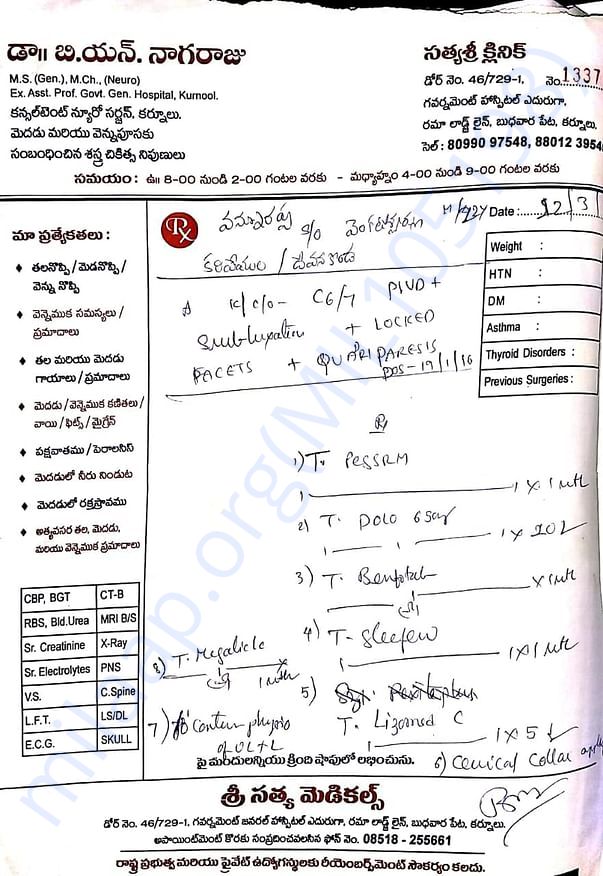 డా॥ బి.యన్. నాగరాజు
M.S. (Gen.), M.Ch., (Neuro)
Ex. Asst. Prof. Govt. Gen. Hospital, Kurnool.
కన్సల్‌టెంట్ న్యూరో సర్జన్, కర్నూలు.
మెదడు మరియు వెన్నుపూసకు
సంబంధించిన శస్త్ర చికిత్స నిపుణులు
సత్యశ్రీ క్లినిక్
డోర్ నెం. 46/729-1, నెం. 1337
గవర్నమెంట్ హాస్పిటల్ ఎదురుగా,
రమా లాడ్జ్ లైన్, బుధవార పేట, కర్నూలు.
సెల్ : 80990 97548, 88012 3954
సమయం : ఉ॥ 8-00 నుండి 2-00 గంటల వరకు - మధ్యాహ్నం 4-00 నుండి 9-00 గంటల వరకు
మా ప్రత్యేకతలు :
తలనొప్పి / మెడనొప్పి /
వెన్ను నొప్పి
వెన్నెముక సమస్యలు /
ప్రమాదాలు
తల మరియు మెదడు
గాయాలు / ప్రమాదాలు
మెదడు / వెన్నెముక కణితలు /
వాయి / ఫిట్స్ / మైగ్రేన్
పక్షవాతము / పెరాలసిస్
మెదడులో నీరు నిండుట
మెదడులో రక్తస్రావము
అత్యవసర తల, మెదడు,
మరియు వెన్నెముక ప్రమాదాలు
CBP, BGT CT-B
RBS, Bld.Urea MRI B/S
Sr. Creatinine X-Ray
Sr. Electrolytes PNS
V.S. C.Spine
L.F.T. LS/DL
E.C.G. SKULL
Rx
S/o
Date : 12/3
కరివేముల / దేవనకొండ
Weight :
HTN :
DM :
Asthma :
Thyroid Disorders :
Previous Surgeries :
K/C/O - C6/7 PIVD +
Subluxation + LOCKED
FACETS + QUADRIPARESIS
DOS - 19/1/16
Rx
1) T. PESSRM
1 X 1 Mth
2) T. DOLO 650mg
1 X 20
3) T. Benfotab
X 1 Mth
4) T. Sleepew
1 X 1 Mth
5)
T. Lizomed C
1 X 5
6) Cervical Collar
7) Contin physio
of UL + L
8) T. Megalicle
1 Mth
పై మందులన్నియు క్రింది షాపులో లభించును.
శ్రీ సత్య మెడికల్స్
డోర్ నెం. 46/729-1, గవర్నమెంట్ జనరల్ హాస్పిటల్ ఎదురుగా, రమా లాడ్జ్ లైన్, బుధవార పేట, కర్నూలు.
అపాయింట్‌మెంట్ కొరకు సంప్రదించవలసిన ఫోన్ నెం. 08518 - 255661
రాష్ట్ర ప్రభుత్వ మరియు ప్రైవేట్ ఉద్యోగస్థులకు రీయెంబర్స్‌మెంట్ సౌకర్యం కలదు.
milaap.org(MILL1051598)